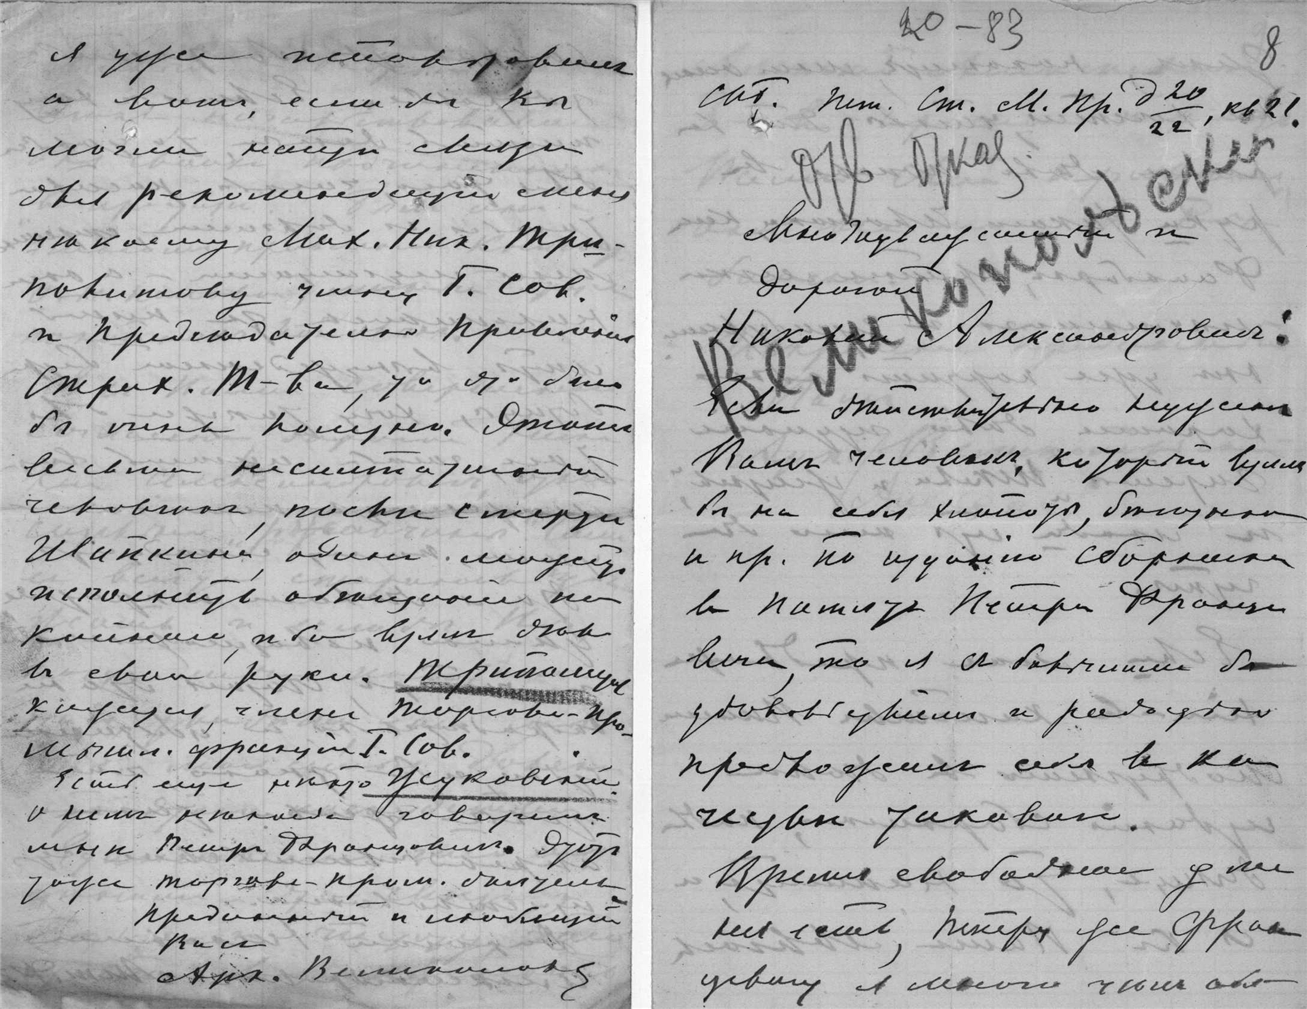 я уже
а вотъ, если бы Вы
могли найти лицо
для рекомендации меня
некоему Мих. Ник. Три-
политову члену Г. Сов.
и Председателю Правленія
Страх. Т-ва, то это было
бы очень полезно. Этотъ
весьма несимпатичный
человекъ, после смерти
Шапкина, одинъ можетъ
исполнить обещаніе по
койнаго, ибо взялъ дело
въ свои руки. Триполитовъ
кажется, членъ Торгово-Про-
мышл. фракціи Г. Сов.
Есть еще некто Жуковскій.
о немъ некогда говорилъ
мне Петръ Францовичъ. Этотъ
тоже торгово-пром. деятель
Преданный и любящій
Васъ
Арк.
20-83
8
СПб. Пет. Ст. М. Пр. д 20/22, кв 21.
Великопольский
Многоуважаемый и
дорогой
Николай Александровичъ!
Если действительно нуженъ
Вамъ человекъ, который взялъ
бы на себя хлопоты, беготню
и пр. по изданію Сборника
въ память Петра Франце
вича, то я съ большимъ бы
удовольствіемъ и радостью
предложилъ себя въ ка
честве таковаго.
Время свободное у ме
ня есть, Петру же Фран
цевичу я много чемъ обя